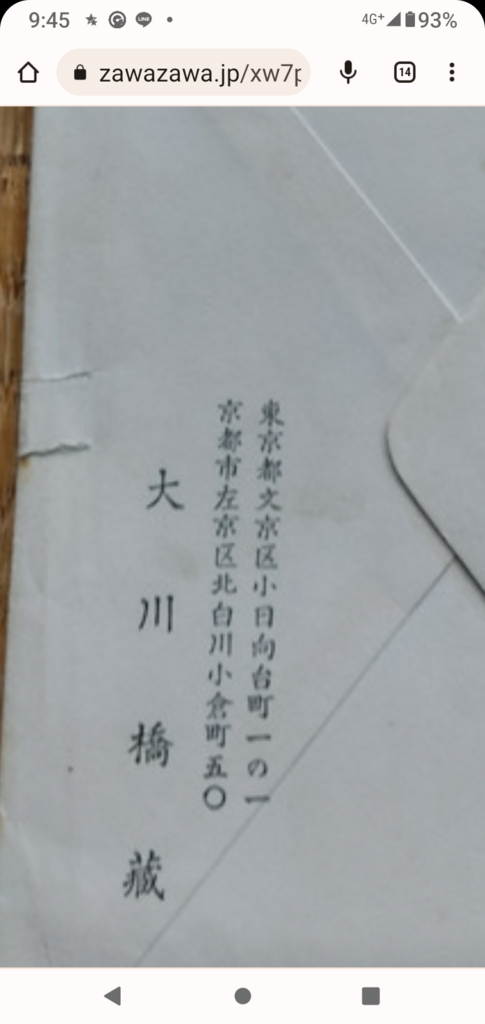 9:45
LINE
4G+
93%
zawazawa.jp/xw7p
14
東京都文京区小日向台町一の一
京都市左京区北白川小倉町五〇
大川橋蔵